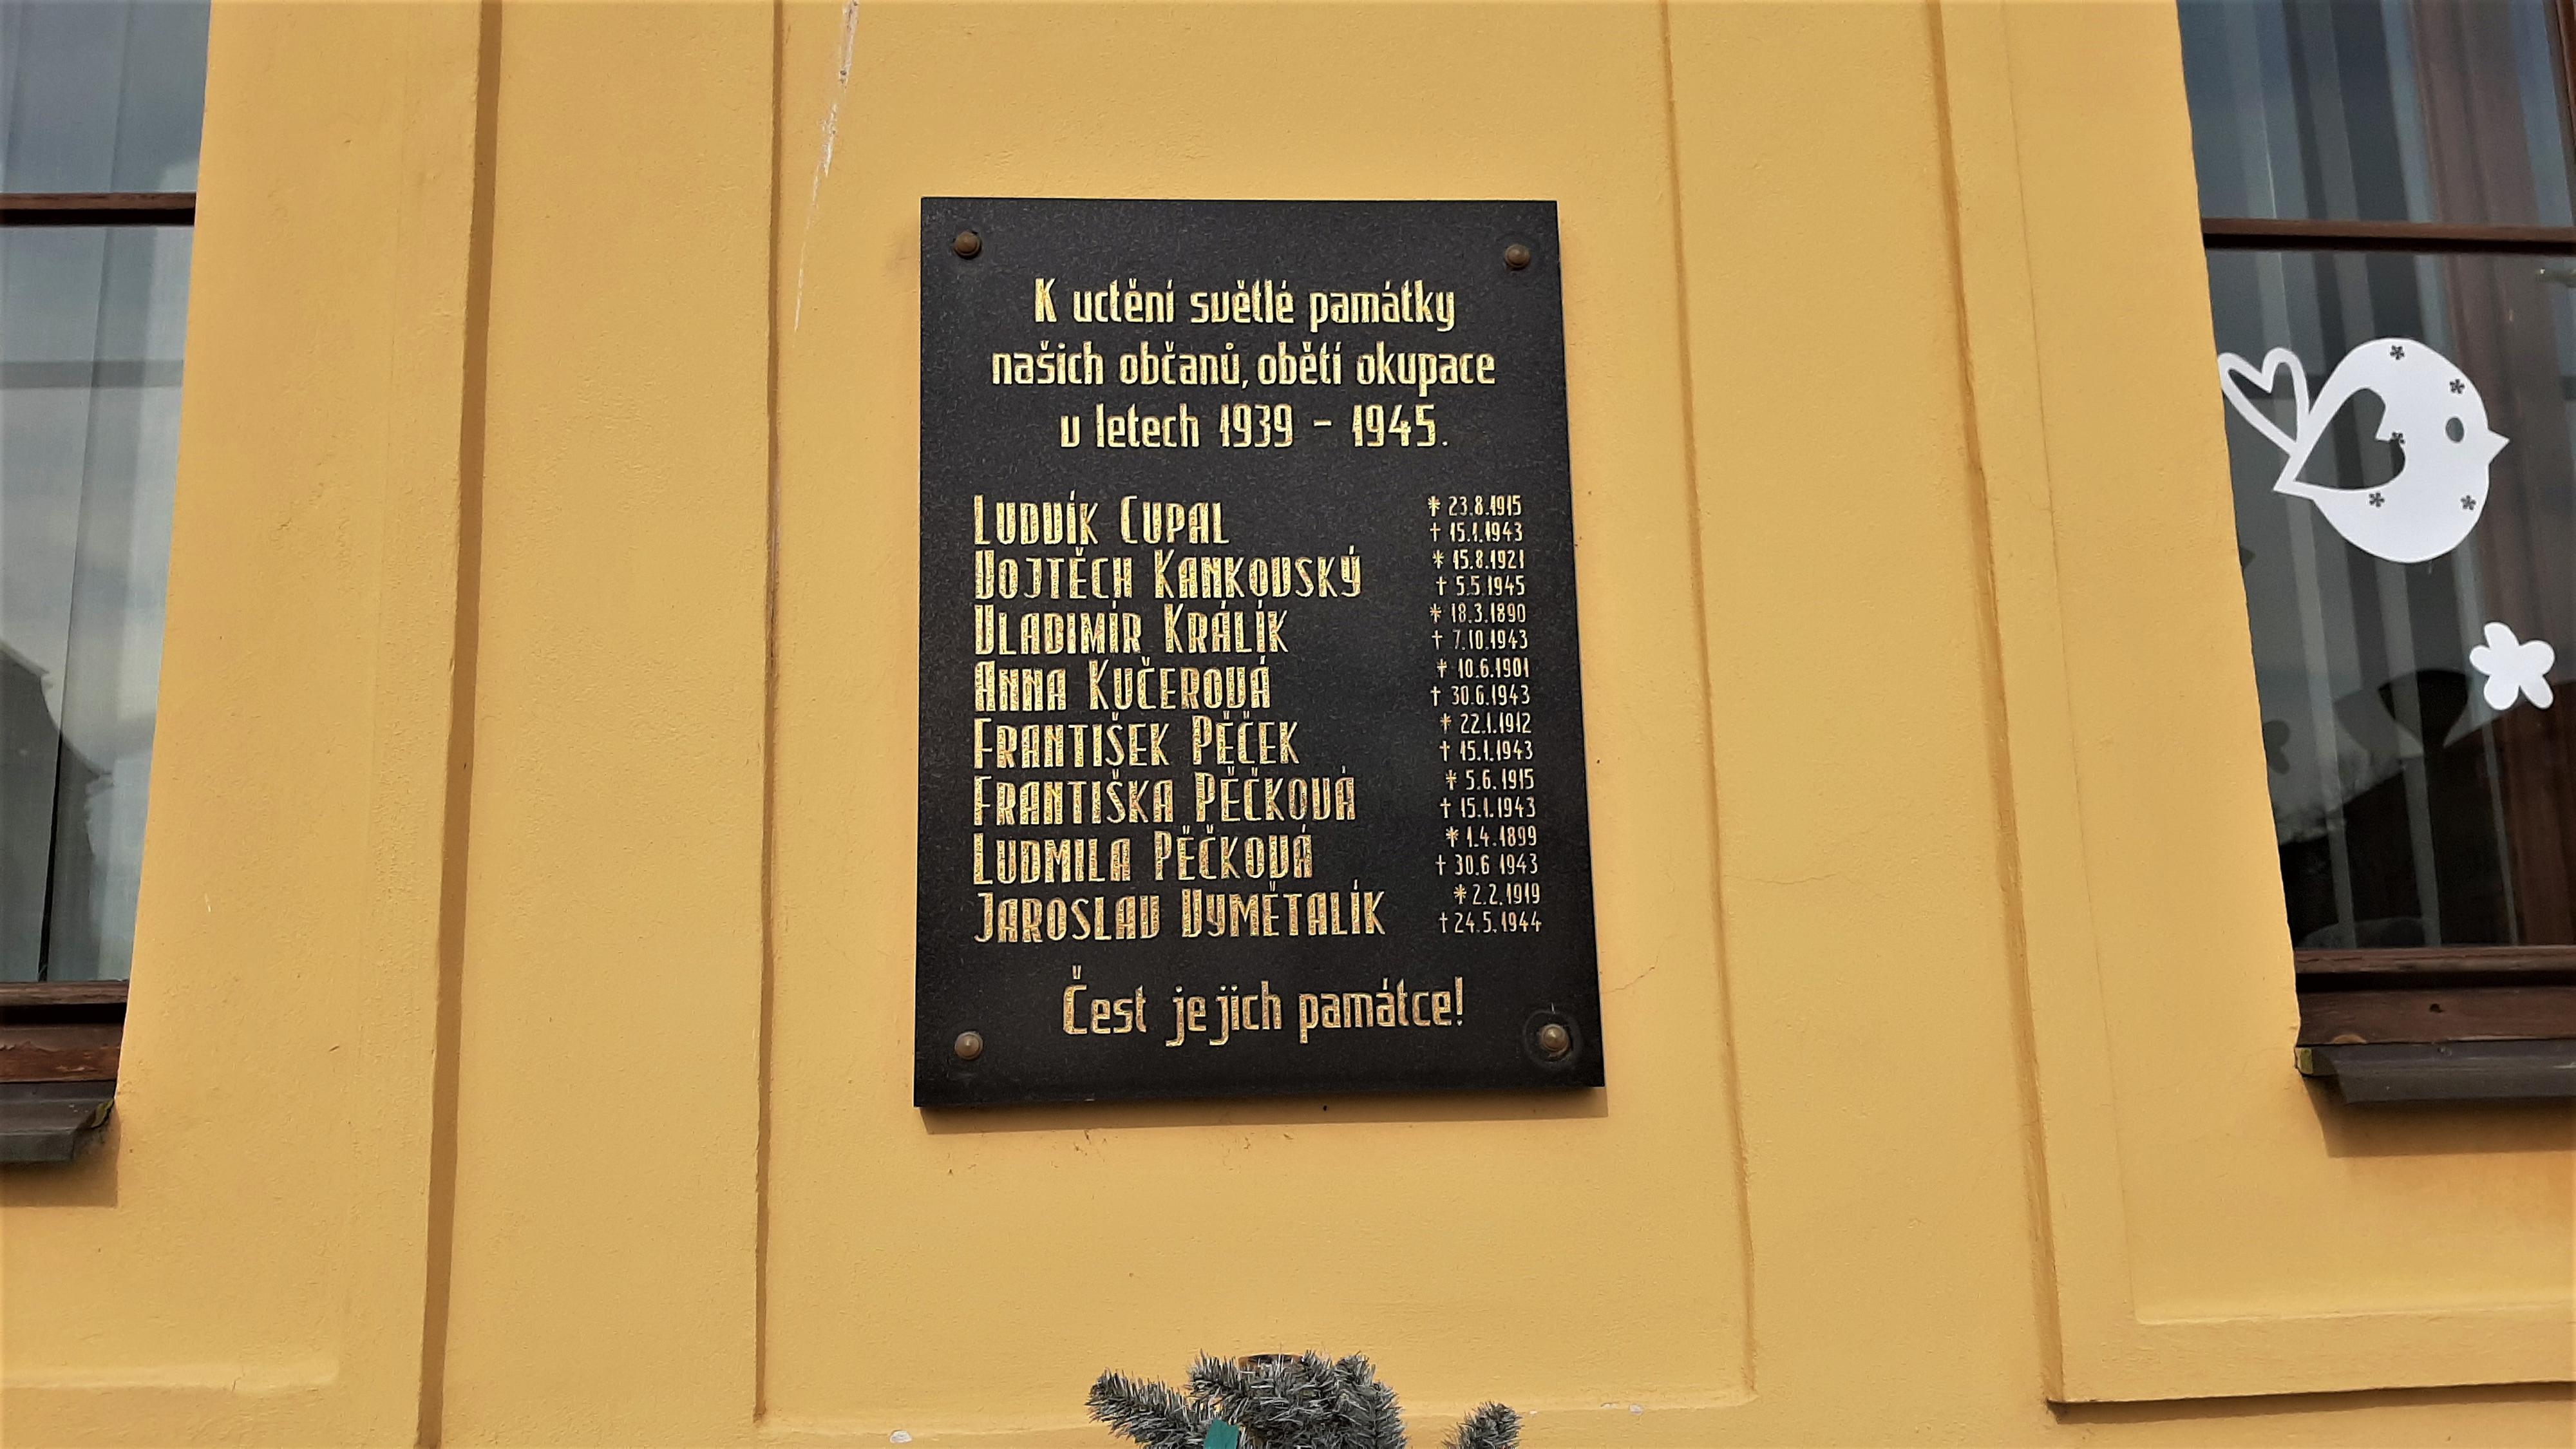 K uctění světlé památky
našich občanů, obětí okupace
v letech 1939 - 1945.
LUDVÍK CUPAL * 23.8.1915
† 15.1.1943
VOJTĚCH KANKOVSKÝ * 15.8.1921
† 5.5.1945
VLADIMÍR KRÁLÍK * 18.3.1890
† 7.10.1943
ANNA KUČEROVÁ * 10.6.1901
† 30.6.1943
FRANTIŠEK PĚČEK * 22.1.1912
† 15.1.1943
FRANTIŠKA PĚČKOVÁ * 5.6.1915
† 15.1.1943
LUDMILA PĚČKOVÁ * 1.4.1899
† 30.6 1943
JAROSLAV VYMĚTALÍK * 2.2.1919
† 24.5.1944
Čest jejich památce!